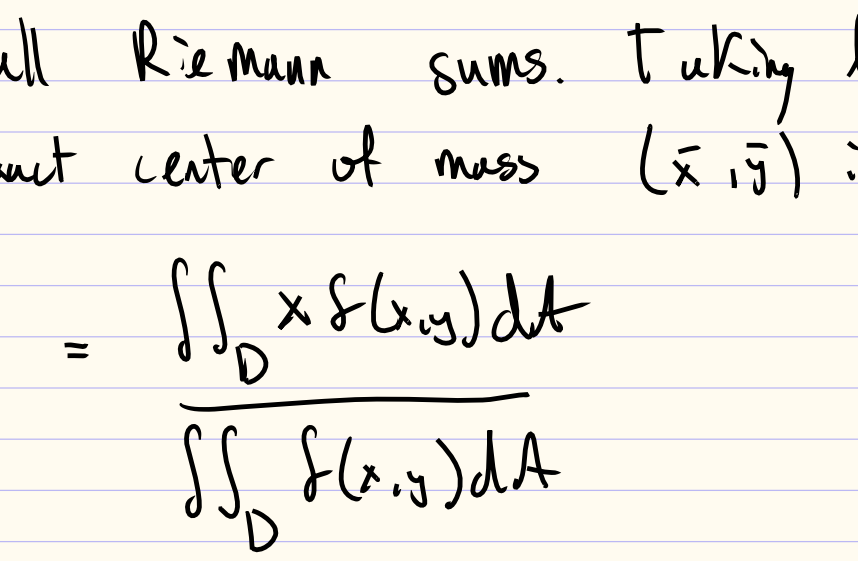 all Riemann sums. Taking
exact center of mass (x̄, ȳ)
= ∬_D x f(x,y) dA
∬_D f(x,y) dA